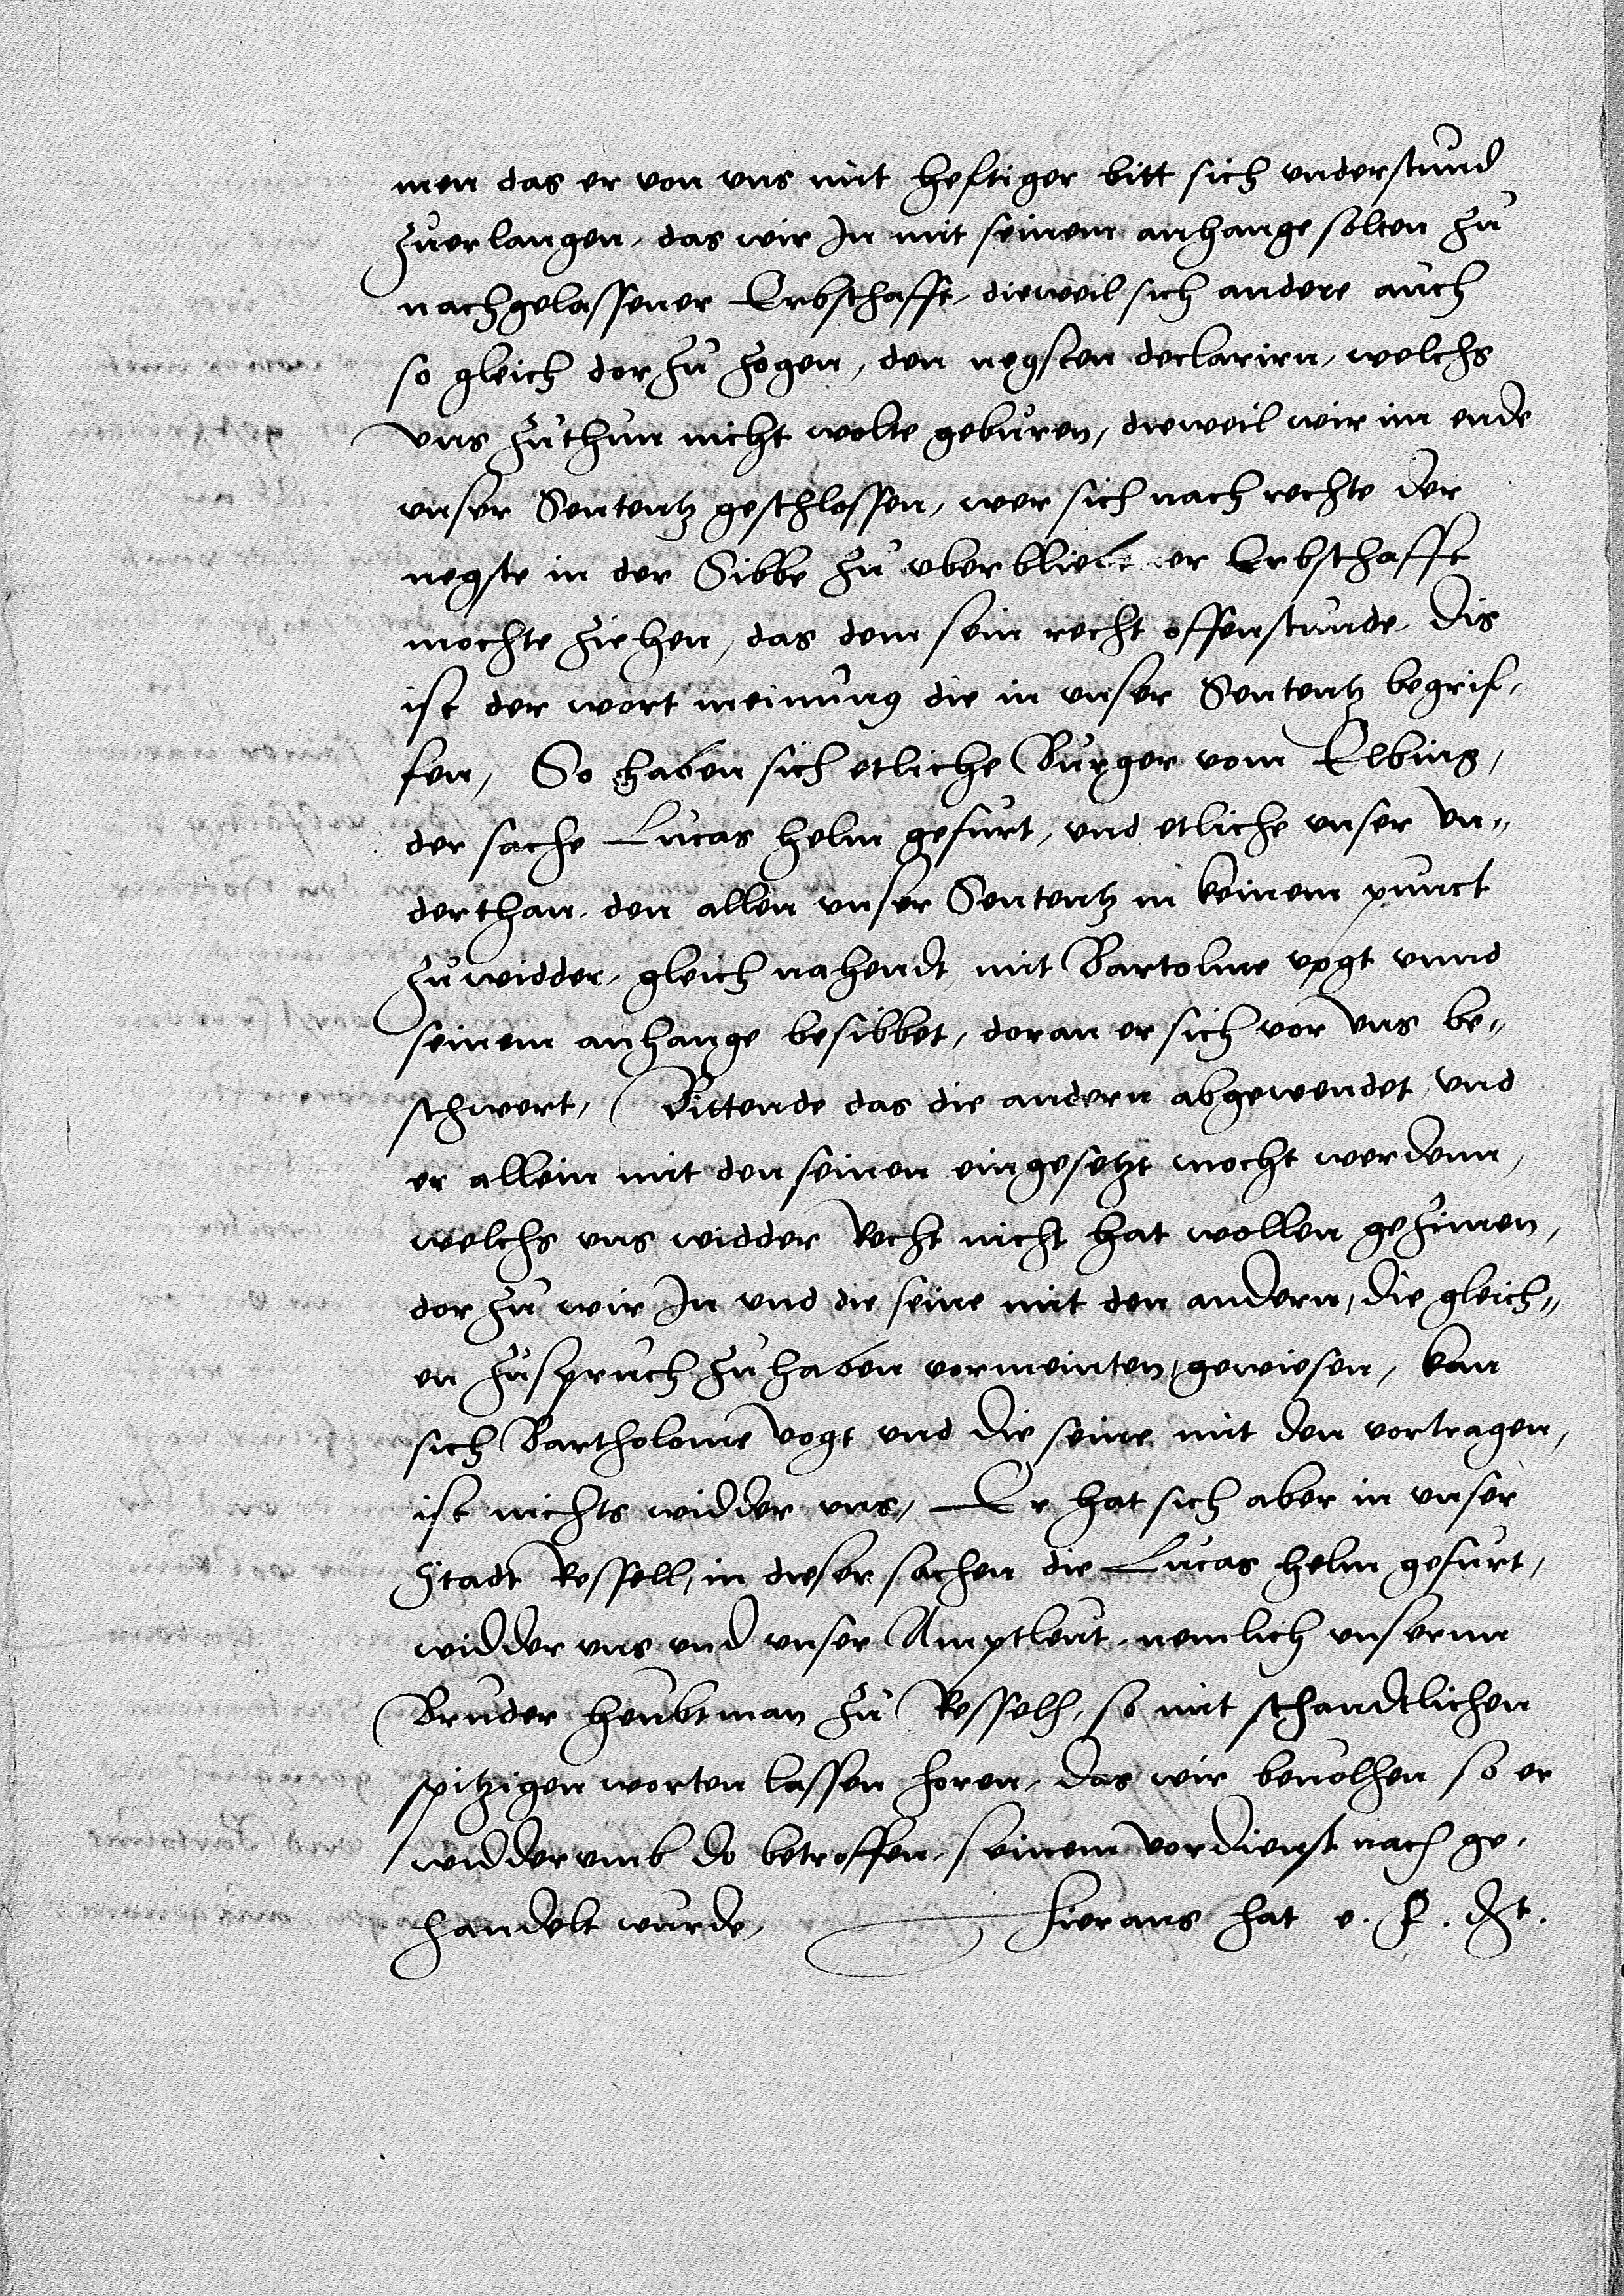 men das er von vns mit hefftiger bitt sich vnderstund
zuerlangen, das wir In mit seinem anhange solten zu
nachgelassener Erbschafft, dieweil sich andere auch
so gleich dorzu zogen, den negsten declarirn, welchs
vns zuthun nicht wolte geburen, dieweil wir im ende
vnser Sententz geschlossen, wer sich nach rechte der
negste in der Sibbe zu vberbliebener Erbschafft
mochte ziehen, das dem sein recht offenstunde, Dis
ist der wort meinung die in vnser Sententz begrif-
fen, So haben sich etliche Burger vom Elbing,
der sache Lucas helm gefurt, vnd etliche vnser vn-
derthan, den allen vnser Sententz in keinem punct
zuwidder, gleich nahendt mit Bartolme vogt vnnd
seinem anhange besibbet, doran er sich vor vns be-
schwert, Bittende das die andern abgewendet, vnd
er allein mit den seinen eingesetzt mocht werdenn,
welchs vns widder Recht nicht hat wollen gezimen,
dorzu wir In vnd die seine mit den andern, die gleich-
en zuspruch zuhaben vormeinten, gewiesen, kan
sich Bartholome vogt vnd die seine mit den vortragen,
ist nichts widder vns, Er hat sich aber in vnser
Stadt Ressell, in dieser sachen die Lucas helm gefurt,
widder vns vnd vnser Amptleut, nemlich vnserm
Bruder heubtman zu Ressell, so mit schandtlichen
spitzigen worten lassen horen, das wir beuolhen so er
widderumb do betroffen, seinem vordienst nach ge-
handelt wurde, Hieraus hat e. f. dt.